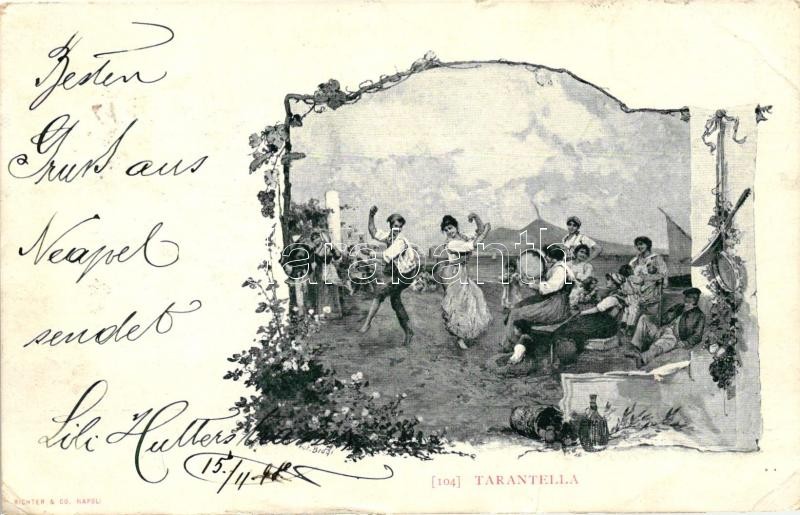 Besten
Gruß aus
Neapel
sendet
Lili
15/11.98
[104] TARANTELLA
RICHTER & CO. NAPOLI
darabanth